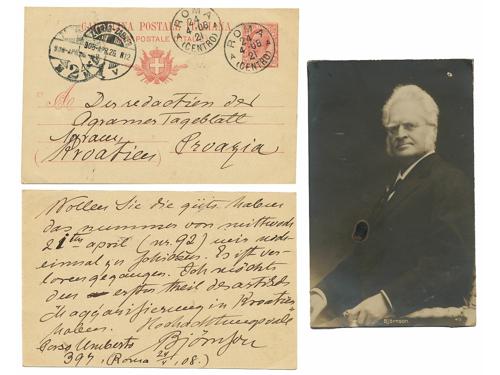 CARTOLINA POSTALE ITALIANA
ROMA
24
4-08
21
(CENTRO)
ROMA
24
4-08
21
(CENTRO)
Der redaction der
Agramer Tageblatt
Agram
(Kroatien) Croazia
Wollen Sie die güte haben
das nummer von mittwoch
april (nr. 92) mir noch
einmal zu schicken. Es ist ver-
loren gegangen. Ich möchte
den ersten theil des artikels
Magyarisierung in Kroatien
haben. Hochachtungsvoll
Corso Umberto Björnson
397, (Roma 08.)
Björnson.